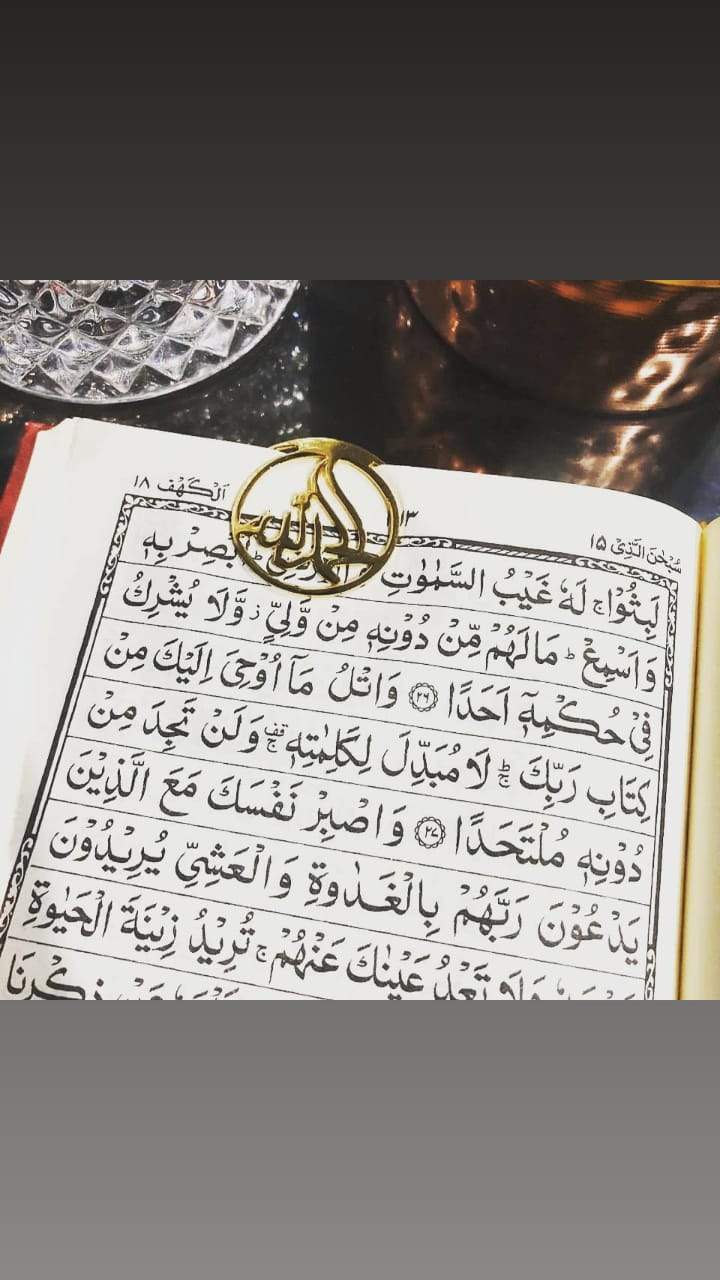 سُبْحٰنَ الَّذِیْۤ ۱۵
اَلْكَهْف ۱۸
الحمدلله
لَبِثُوْا ۚ لَهٗ غَیْبُ السَّمٰوٰتِ اَبْصِرْ بِهٖ
وَ اَسْمِعْ ؕ مَا لَهُمْ مِّنْ دُوْنِهٖ مِنْ وَّلِیٍّ ؗ وَّ لَا یُشْرِكُ
فِیْ حُكْمِهٖۤ اَحَدًا ۲۶ وَ اتْلُ مَاۤ اُوْحِیَ اِلَیْكَ مِنْ
كِتَابِ رَبِّكَ ؕۚ لَا مُبَدِّلَ لِكَلِمٰتِهٖ ۫ۚ وَ لَنْ تَجِدَ مِنْ
دُوْنِهٖ مُلْتَحَدًا ۲۷ وَ اصْبِرْ نَفْسَكَ مَعَ الَّذِیْنَ
یَدْعُوْنَ رَبَّهُمْ بِالْغَدٰوةِ وَ الْعَشِیِّ یُرِیْدُوْنَ
وَ لَا تَعْدُ عَیْنٰكَ عَنْهُمْ ۚ تُرِیْدُ زِیْنَةَ الْحَیٰوةِ
ذِكْرِنَا